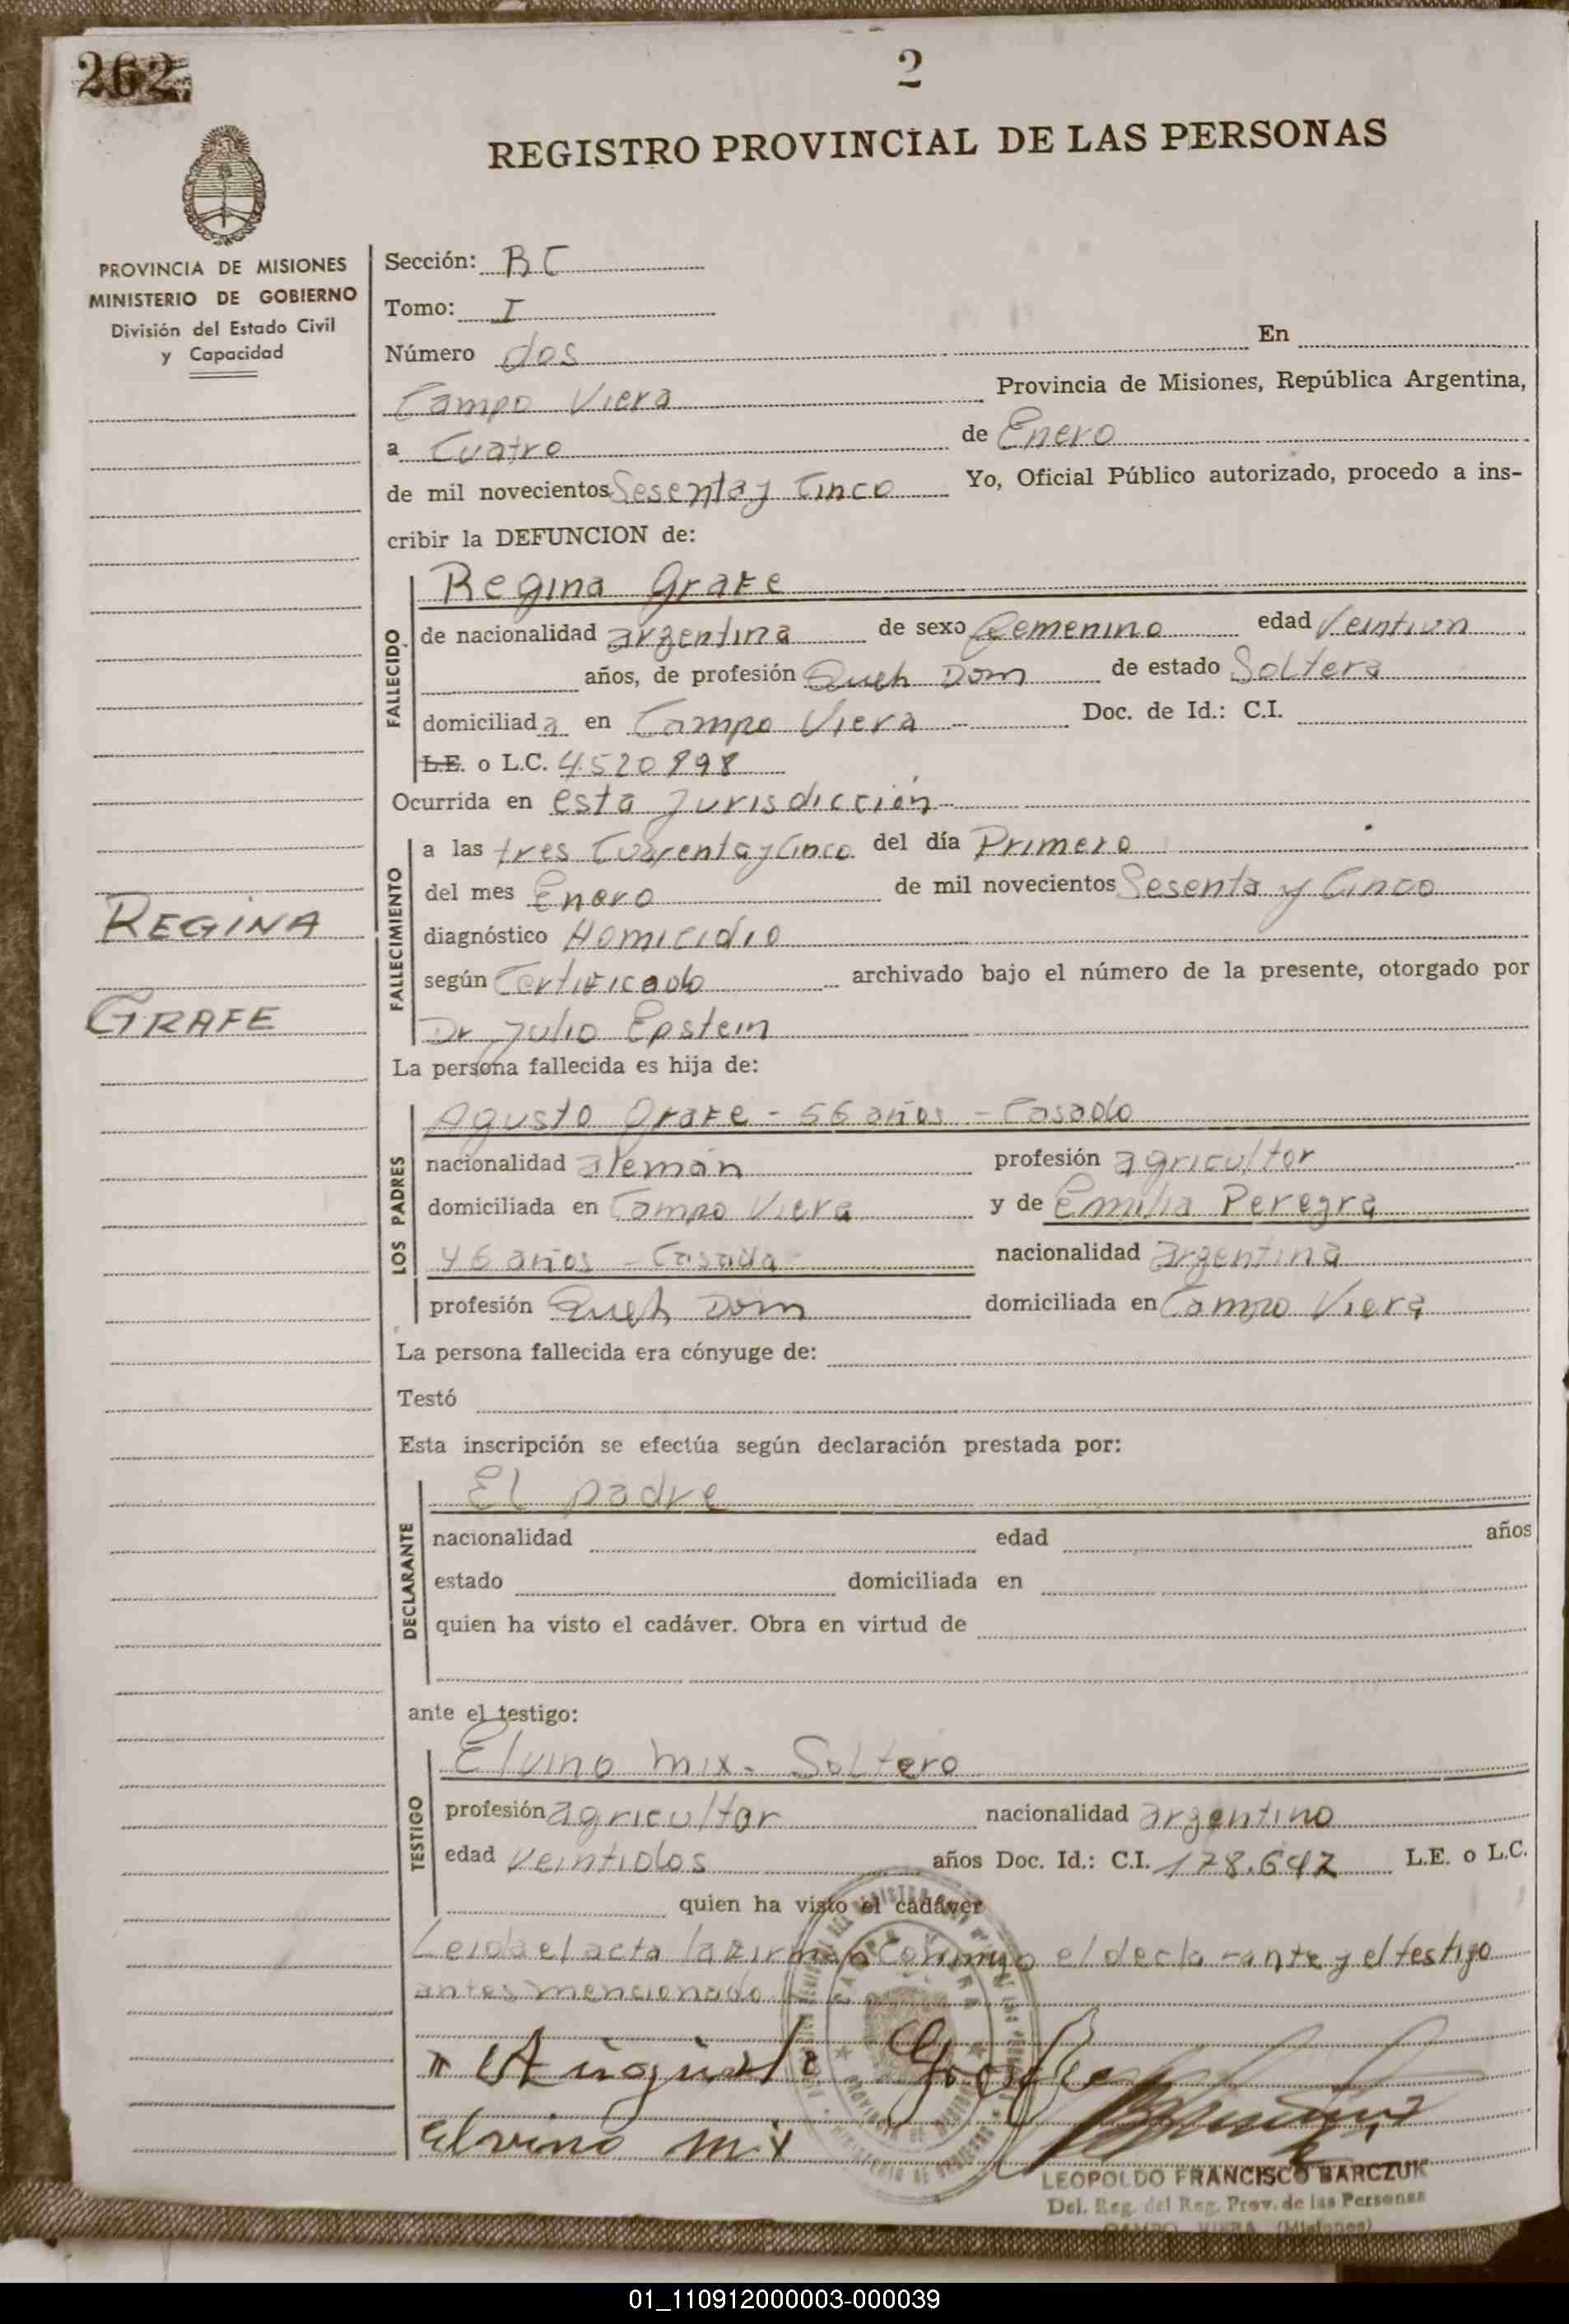 262
2
REGISTRO PROVINCIAL DE LAS PERSONAS
PROVINCIA DE MISIONES
MINISTERIO DE GOBIERNO
División del Estado Civil
y Capacidad
Sección: BC
Tomo: I
Número dos En
Campo Viera Provincia de Misiones, República Argentina,
a Cuatro de Enero
de mil novecientos Sesenta y Cinco Yo, Oficial Público autorizado, procedo a ins-
cribir la DEFUNCION de:
FALLECIDO
Regina Grafe
de nacionalidad argentina de sexo femenino edad Veintiun
años, de profesión Queh Dom de estado Soltera
domiciliada en Campo Viera Doc. de Id.: C.I.
L.E. o L.C. 4.520898
Ocurrida en esta Jurisdicción
FALLECIMIENTO
a las tres Cuarenta y Cinco del día Primero
del mes Enero de mil novecientos Sesenta y Cinco
diagnóstico Homicidio
según Certificado archivado bajo el número de la presente, otorgado por
Dr Julio Epstein
REGINA
GRAFE
La persona fallecida es hija de:
LOS PADRES
Agusto Grafe - 56 años - Casado
nacionalidad aleman profesión agricultor
domiciliada en Campo Viera y de Emilia Peregra
46 años - Casada nacionalidad argentina
profesión Queh Dom domiciliada en Campo Viera
La persona fallecida era cónyuge de:
Testó
Esta inscripción se efectúa según declaración prestada por:
DECLARANTE
El padre
nacionalidad edad años
estado domiciliada en
quien ha visto el cadáver. Obra en virtud de
ante el testigo:
TESTIGO
Elvino Mix - Soltero
profesión agricultor nacionalidad argentino
edad veintidos años Doc. Id.: C.I. 178.642 L.E. o L.C.
quien ha visto el cadáver
Leida el acta la firman Conmigo el decla-rante y el testigo
antes mencionado
Auguste Grafe
elvino mix
LEOPOLDO FRANCISCO BARCZUK
Del. Reg. del Reg. Prov. de las Personas
CAMPO VIERA (Misiones)
01_110912000003-000039